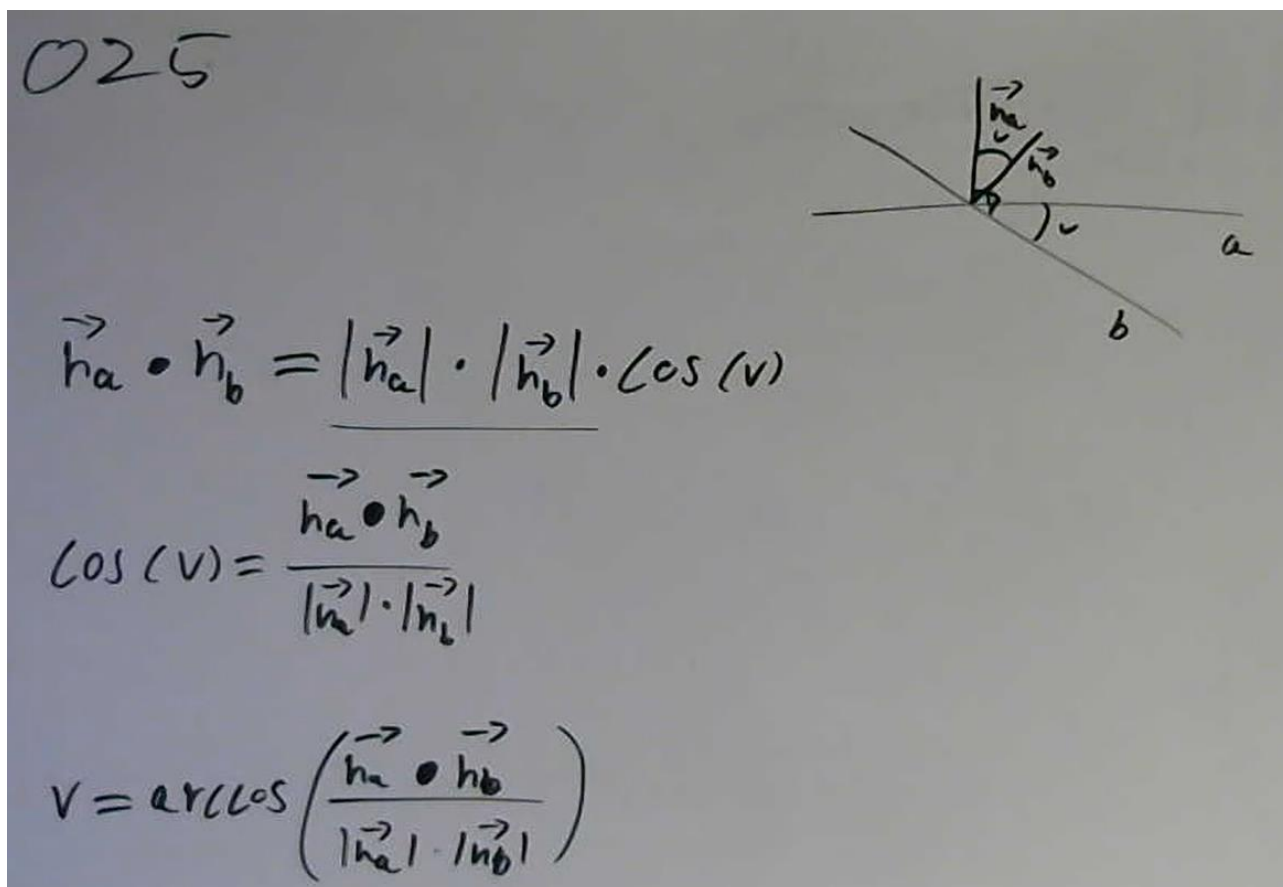 025
→na
v
→nb
v
a
b
→na • →nb = |→na| · |→nb| · cos(v)
cos(v) = (→na • →nb) / (|→na| · |→nb|)
v = arccos((→na • →nb) / (|→na| · |→nb|))